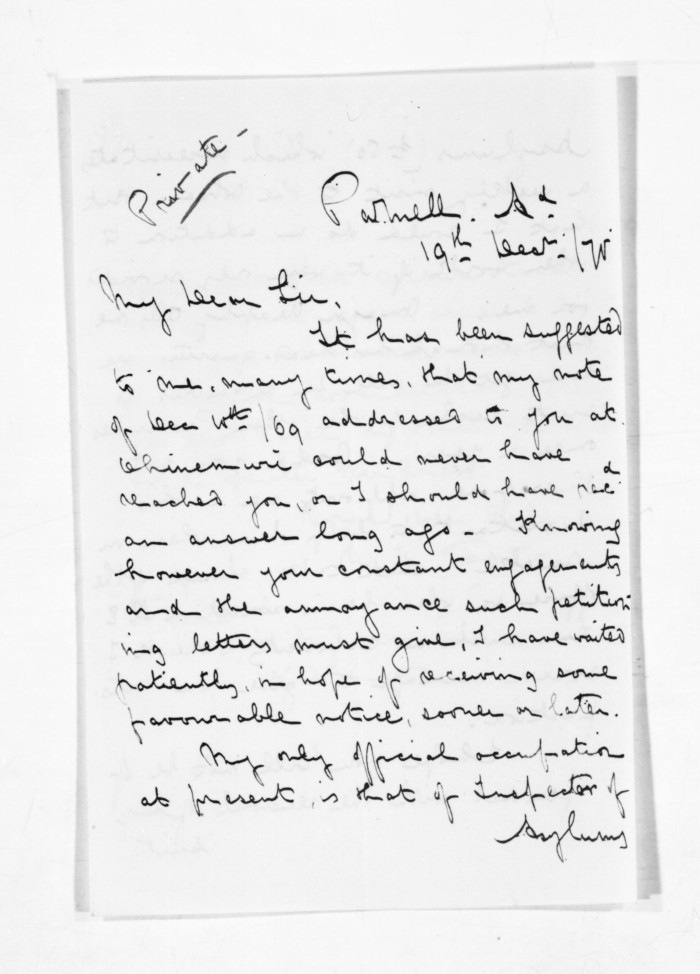 Private -
Parnell. Ad
19th Decr /70
My Dear Sir,
It has been suggested
to me, many times, that my note
of Dec 10th /69 addressed to you at
Ohinemuri could never have
reached you, or I should have recd
an answer long ago - Knowing
however your constant engagements
and the annoyance such petition-
ing letters must give, I have waited
patiently, in hope of receiving some
favourable notice, sooner or later.
My only official occupation
at present, is that of Inspector of
Asylums